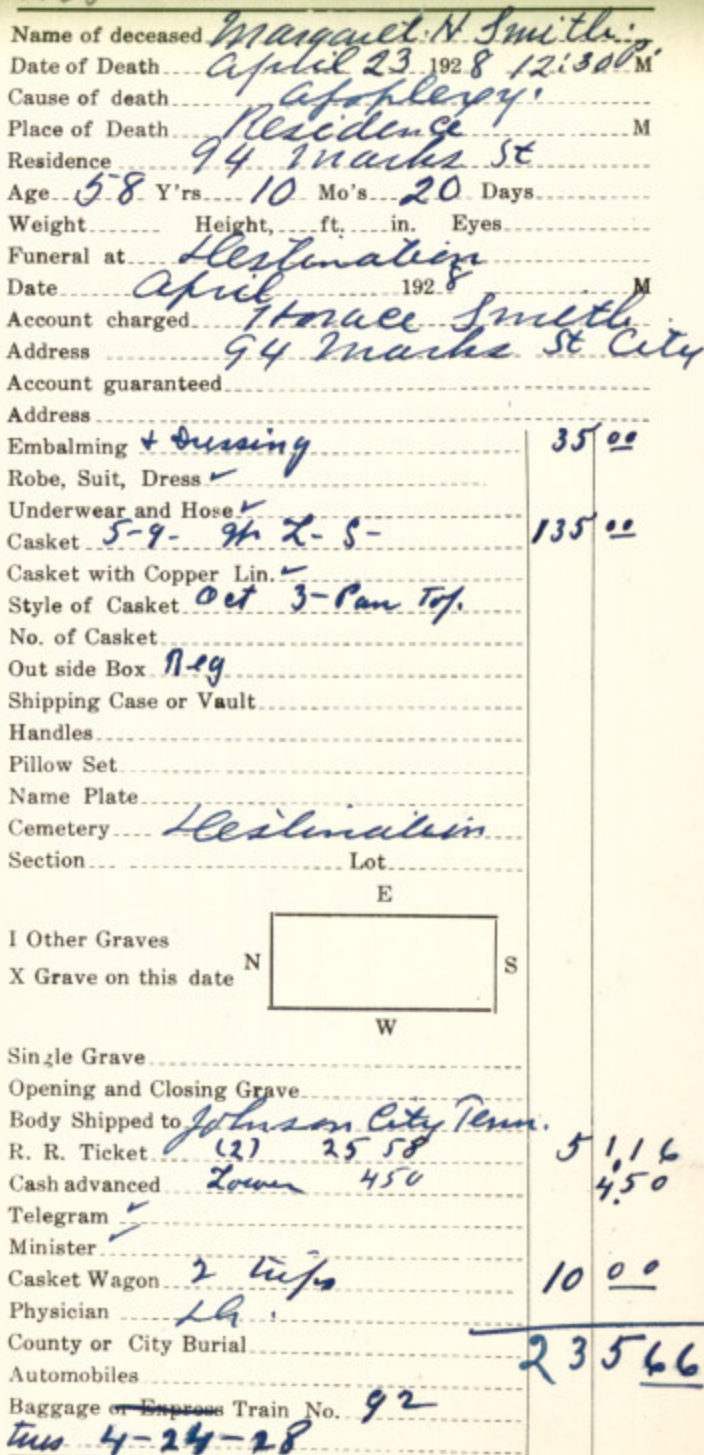 Name of deceased Margaret N Smith.
Date of Death April 23 1928 12:30 P. M
Cause of death apoplexy.
Place of Death Residence M
Residence 94 Marks St
Age 58 Y'rs 10 Mo's 20 Days
Weight Height, ft. in. Eyes
Funeral at Destination
Date April 1928 M
Account charged Horace Smith
Address 94 Marks St City
Account guaranteed
Address
Embalming + Dressing 35 00
Robe, Suit, Dress ✓
Underwear and Hose ✓
Casket 5-9- S- 135 00
Casket with Copper Lin. ✓
Style of Casket Oct 3-Pan Top.
No. of Casket
Out side Box Reg
Shipping Case or Vault
Handles
Pillow Set
Name Plate
Cemetery Destination
Section Lot
E
I Other Graves
N S
X Grave on this date
W
Single Grave
Opening and Closing Grave
Body Shipped to Johnson City Tenn.
R. R. Ticket (2) 25 58 51.16
Cash advanced Lower 450 4.50
Telegram ✓
Minister ✓
Casket Wagon 2 trips 10 00
Physician
County or City Burial 235 66
Automobiles
Baggage or Express Train No. 92
tues 4-24-28